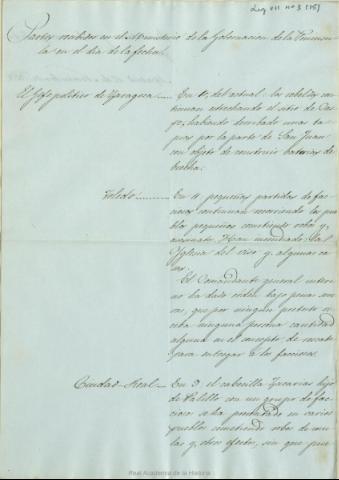 Leg VII nº 3 (15)
Partes recibidos en el Ministerio de la Gobernacion de la Peninsu-
la en el dia de la fecha.
El Gefe politico de Zaragoza....... En 11, del actual los rebeldes con-
tinuan estrechando el sitio de Cas-
pe, habiendo derribado unas ta-
pias por la parte de San Juan
con objeto de construir baterias de
brecha.
Toledo.......... En 11 pequeñas partidas de fac-
ciosos continuan recorriendo los pue-
blos pequeños cometiendo robos y
asesinatos. Han incendiado la
Yglesia del viso y algunas ca-
sas.
El Comandante general interi-
no ha dado orden bajo pena
que por ningun pretesto se
exija ninguna persona cantidad
alguna en el concepto de rescate
para entregar a los facciosos.
Ciudad-Real.... En 9, el cabecilla Zacarias hijo
de Palillo con un grupo de fac-
ciosos se ha presentado en varios
pueblos cometiendo robos de mu-
las y otros efectos, sin que pue-
Real Academia de la Historia